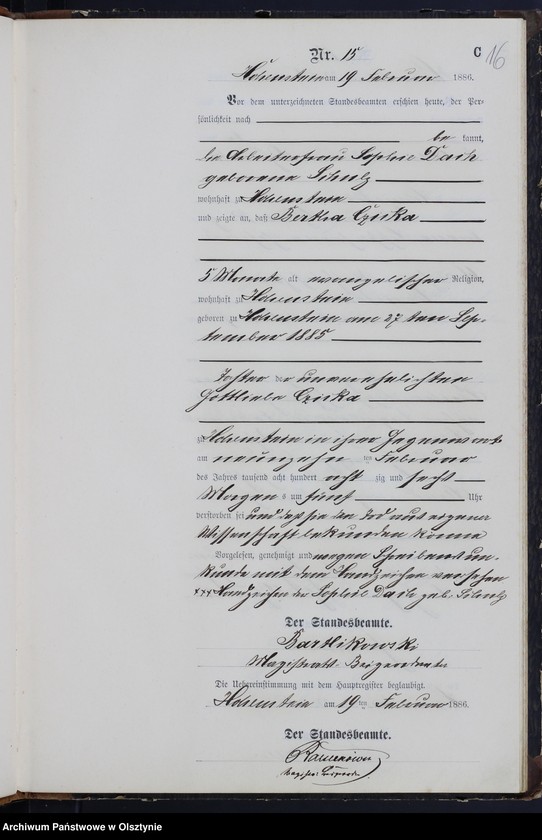 C 16
Nr. 15
Hohenstein am 19 Februar 1886.
Vor dem unterzeichneten Standesbeamten erschien heute, der Per-
sönlichkeit nach
be kannt,
die Arbeiterfrau Sophie
geborene Schulz
wohnhaft zu Hohenstein
und zeigte an, daß Bertha Czuka
5 Monate alt evangelischer Religion,
wohnhaft zu Hohenstein
geboren zu Hohenstein am 27 ten Sep-
tember 1885
Tochter der unverehelichten
Gottliebe Czuka
zu Hohenstein in ihrer Gegenwart
am neunzehn ten Februar
des Jahres tausend acht hundert acht zig und sechs
Morgen s um fünf Uhr
verstorben sei und daß sie den Tod aus eigener
Wissenschaft bekunden könne
Vorgelesen, genehmigt und wegen Schreibensun-
kunde mit dem Handzeichen versehen
+++ Handzeichen der Sophie geb. Schulz
Der Standesbeamte.
Bartlikowski
Magistrats-Beigeordneter
Die Uebereinstimmung mit dem Hauptregister beglaubigt.
Hohenstein am 19 ten Februar 1886.
Der Standesbeamte.
Archiwum Państwowe w Olsztynie